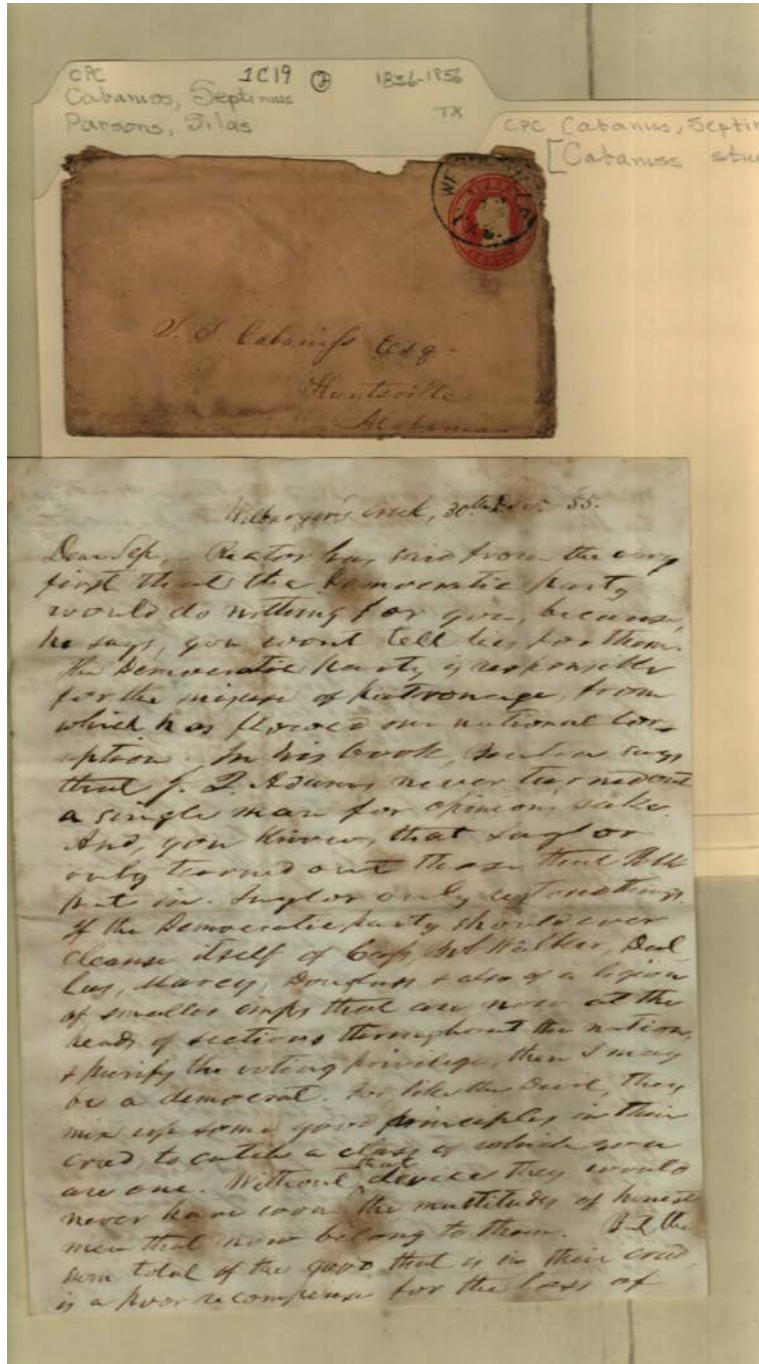 CPC 1C19 2 1836-1856
Cabaniss, Septimus
Parsons, Silas TX
CPC Cabaniss, Septim
[Cabaniss stud
S. D. Cabaniss Esq.
Huntsville
Alabama
Wilbarger's Creek, 30th '55.
Dear Sep, has said from the very
first that the Democratic party
would do nothing for you, because,
he says, you wont tell lies for them.
The Democratic party is responsible
for the misuse of patronage, from
which has flowed our national cor-
uption. In his book, Benton says
that J. Q. Adams never turned out
a single man for opinions sake.
And, you know, that Taylor
only turned out those that Polk
put in. Taylor only
If the Democratic party should ever
cleanse itself of Cass, Walker, Dal
las, Marcy, Douglass & also of a legion
of smaller imps that are now at the
heads of sections throughout the nation,
& purify the voting privilege, then I may
be a democrat. For like the Devil, they
mix up some good principles in their
creed, to catch a class of which you
are one. Without that device they would
never have won the multitudes of honest
men that now belong to them. But the
sum total of the good that is in their creed,
is a poor recompense for the loss of